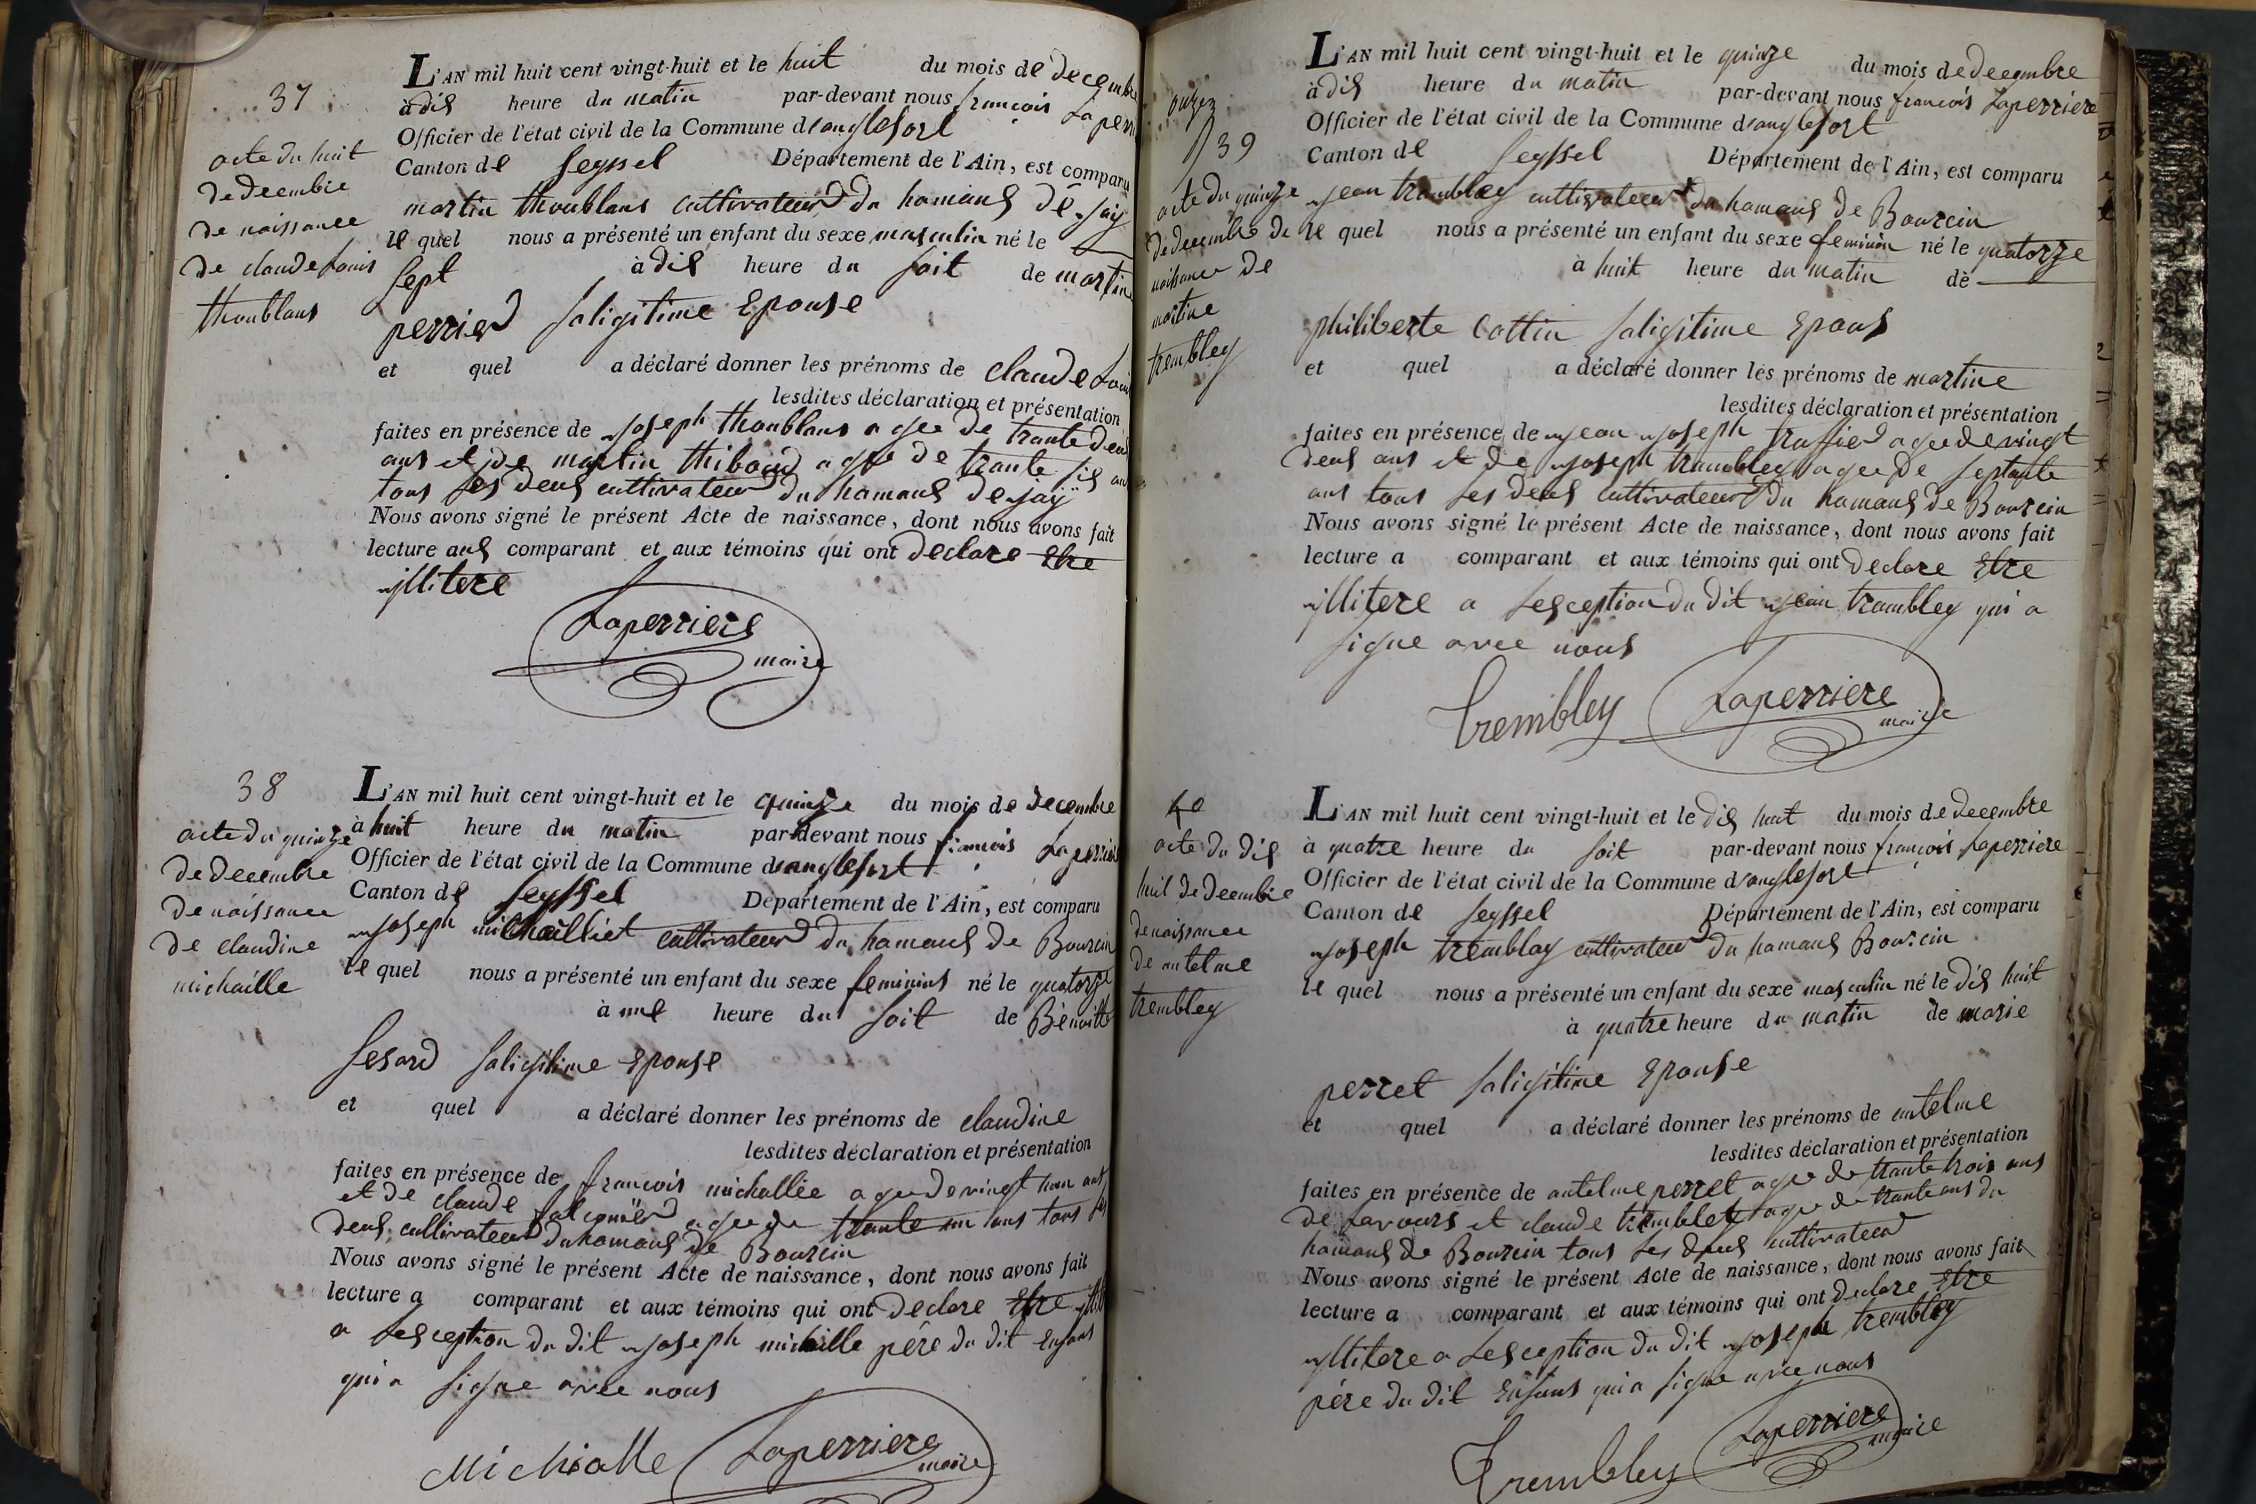 37
acte du huit
de decembre
de naissance
de claude Louis
thoublans
L'AN mil huit cent vingt-huit et le huit du mois de decembre
à dix heure du matin par-devant nous francois Laperri
Officier de l'état civil de la Commune d'anglefort
Canton de Seyssel Département de l'Ain, est comparu
martin thoublans cultivateur du hamaus de jay
le quel nous a présenté un enfant du sexe masculin né le
Sept à dix heure du soit de martine
perrier saligitime Epouse
et quel a déclaré donner les prénoms de claude Louis
lesdites déclaration et présentation
faites en présence de joseph thoublans agee de trante deux
ans et de martin thiboud agee de trante six ans
tous les deux cultivateur du hamaus de jay
Nous avons signé le présent Acte de naissance, dont nous avons fait
lecture aux comparant et aux témoins qui ont declare Etre
illitere
Laperriere
maire
38
acte du quinze
de decembre
de naissance
de claudine
michaille
L'AN mil huit cent vingt-huit et le quinze du mois de decembre
à huit heure du matin par-devant nous francois Laperriere
Officier de l'état civil de la Commune d'anglefort
Canton de Seyssel Département de l'Ain, est comparu
joseph michailliet cultivateur du hamaus de Bourcin
le quel nous a présenté un enfant du sexe feminins né le quatorze
à une heure du soit de Benoitte
saligitime Epouse
et quel a déclaré donner les prénoms de claudine
lesdites déclaration et présentation
faites en présence de francois michallie agee de vingt ans
et de claude agee de trante un ans tous les
deux cultivateur du hamaus de Bourcin
Nous avons signé le présent Acte de naissance, dont nous avons fait
lecture a comparant et aux témoins qui ont declare Etre
a Lesception du dit joseph michaille pére du dit Enfans
qui a signe avec nous
Michialle Laperriere
maire
39
acte du quinze
de decembre de
naissance de
martine
trembley
L'AN mil huit cent vingt-huit et le quinze du mois de decembre
à dix heure du matin par-devant nous francois Laperriere
Officier de l'état civil de la Commune d'anglefort
Canton de Seyssel Département de l'Ain, est comparu
jean trambley cultivateur du hamaus de Bourcin
le quel nous a présenté un enfant du sexe feminin né le quatorze
à huit heure du matin de
philiberte Cottin saligitime Epous
et quel a déclaré donner les prénoms de martine
lesdites déclaration et présentation
faites en présence de jean joseph agee de vingt
deux ans et de joseph trambley agee de septante
ans tous les deux cultivateur du hamaus de Bourcin
Nous avons signé le présent Acte de naissance, dont nous avons fait
lecture a comparant et aux témoins qui ont declare Etre
illitere a Lesception du dit jean trambley qui a
signe avec nous
Trembley Laperriere
maire
40
acte du dix
huit de decembre
de naissance
de antelme
trembley
L'AN mil huit cent vingt-huit et le dix huit du mois de decembre
à quatre heure du soit par-devant nous francois Laperriere
Officier de l'état civil de la Commune d'anglefort
Canton de Seyssel Département de l'Ain, est comparu
joseph tremblay cultivateur du hamaus Bourcin
le quel nous a présenté un enfant du sexe masculin né le dix huit
à quatre heure du matin de marie
perret saligitime Epouse
et quel a déclaré donner les prénoms de antelme
lesdites déclaration et présentation
faites en présence de antelme perret agee de trante trois ans
de Lavours et claude tremblet agee de trante ans du
hamaus de Bourcin tous les deux cultivateur
Nous avons signé le présent Acte de naissance, dont nous avons fait
lecture a comparant et aux témoins qui ont declare Etre
illitere a Lesception du dit joseph trembley
pére du dit Enfans qui a signe avec nous
Trembley Laperriere
maire